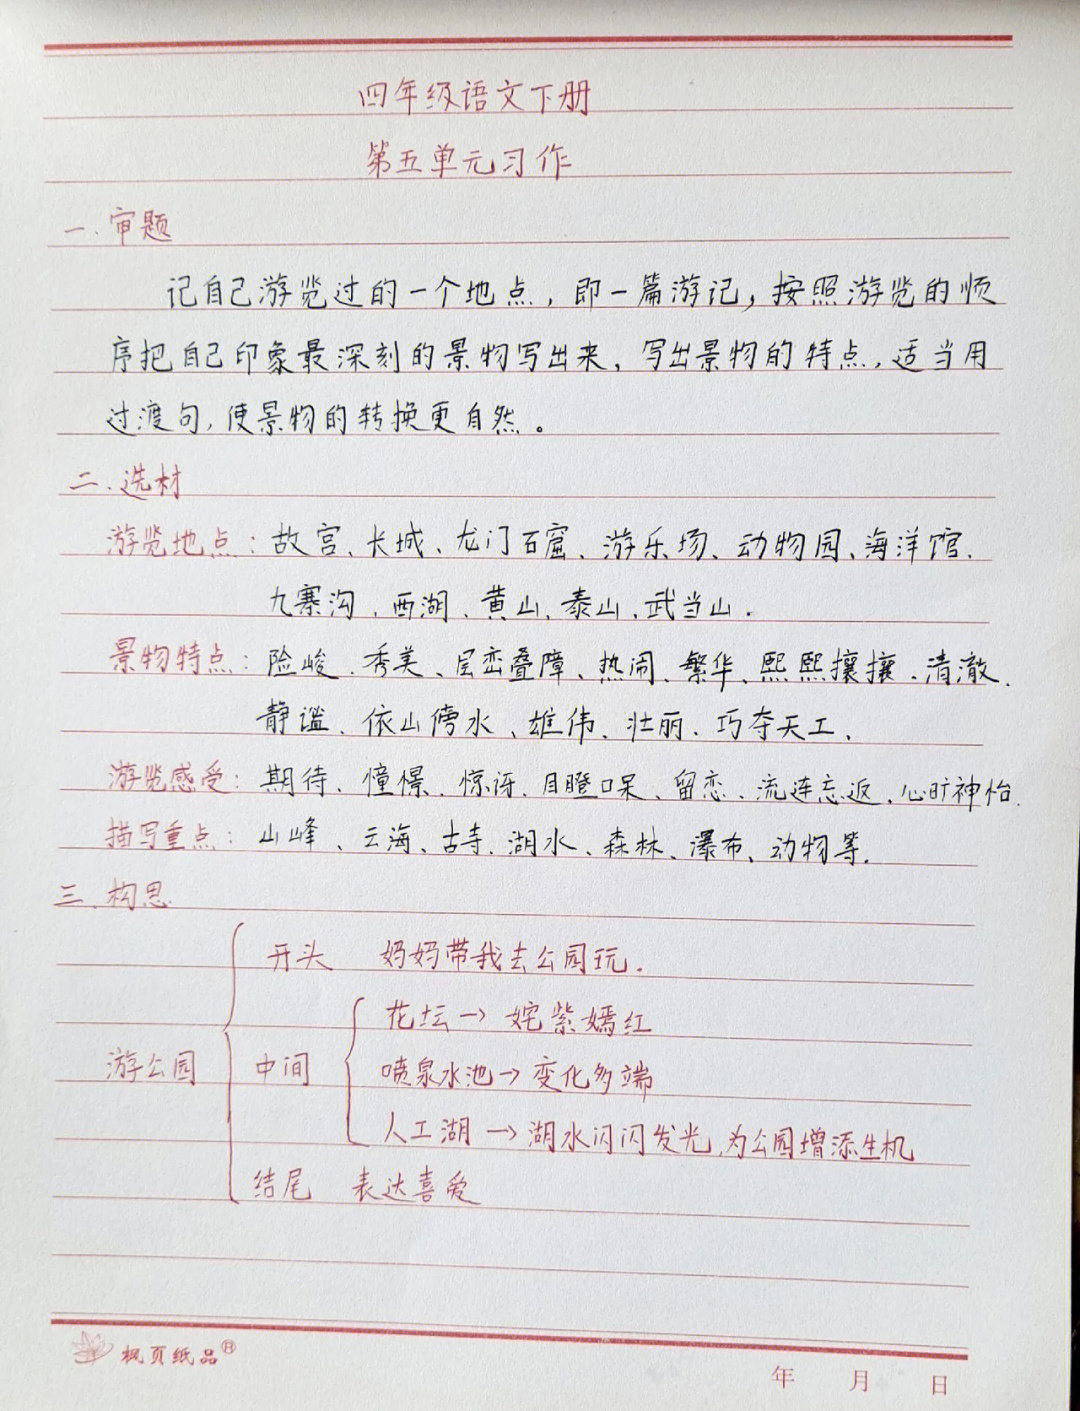 四年级语文下册
第五单元习作
一.审题
记自己游览过的一个地点，即一篇游记，按照游览的顺
序把自己印象最深刻的景物写出来，写出景物的特点，适当用
过渡句，使景物的转换更自然。
二.选材
游览地点：故宫、长城、龙门石窟、游乐场、动物园、海洋馆、
九寨沟、西湖、黄山、泰山、武当山.
景物特点：险峻、秀美、层峦叠障、热闹、繁华、熙熙攘攘、清澈、
静谧、依山傍水、雄伟、壮丽、巧夺天工、
游览感受：期待、憧憬、惊讶、目瞪口呆、留恋、流连忘返、心旷神怡.
描写重点：山峰、云海、古寺、湖水、森林、瀑布、动物等.
三.构思
开头 妈妈带我去公园玩.
花坛→姹紫嫣红
游公园 中间 喷泉水池→变化多端
人工湖→湖水闪闪发光,为公园增添生机
结尾 表达喜爱
枫页纸品®
年 月 日